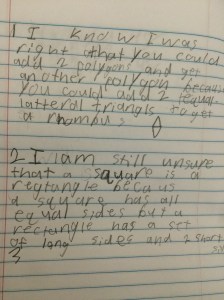 1 I know I was
right that you could
add 2 polygons and get
another polygon because
you could add 2 equal
latteral triangls to get
a rhombus
2 I iam still unsure
that a square is a
reqtangle becaus
a square has all
equal sides but a
rectangle has a set
of long sides and 2 short